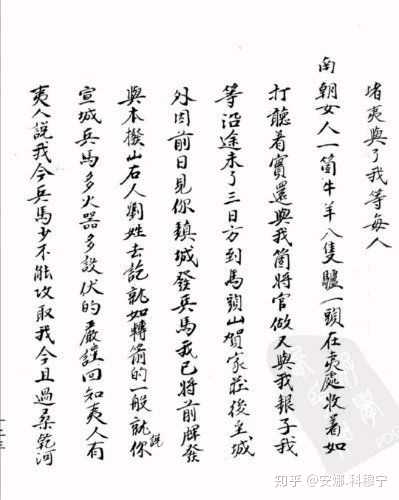 堵夷與了我等每人
南朝女人一箇牛羊八隻驢一頭在夷處收着如
打聽着實還與我箇將官做又與我銀子我
等沿途未了三日方到馬頭山賀家莊後至城
外因前日見你鎮城發兵馬我已將前牌發
與本撥山右人劉姓去訖就如轉箭的一般就你說
宣城兵馬多火器多設伏的嚴謹回知夷人有
夷人說我今兵馬少不能攻取我今且過桑乾河
知乎 @安娜.科穆宁